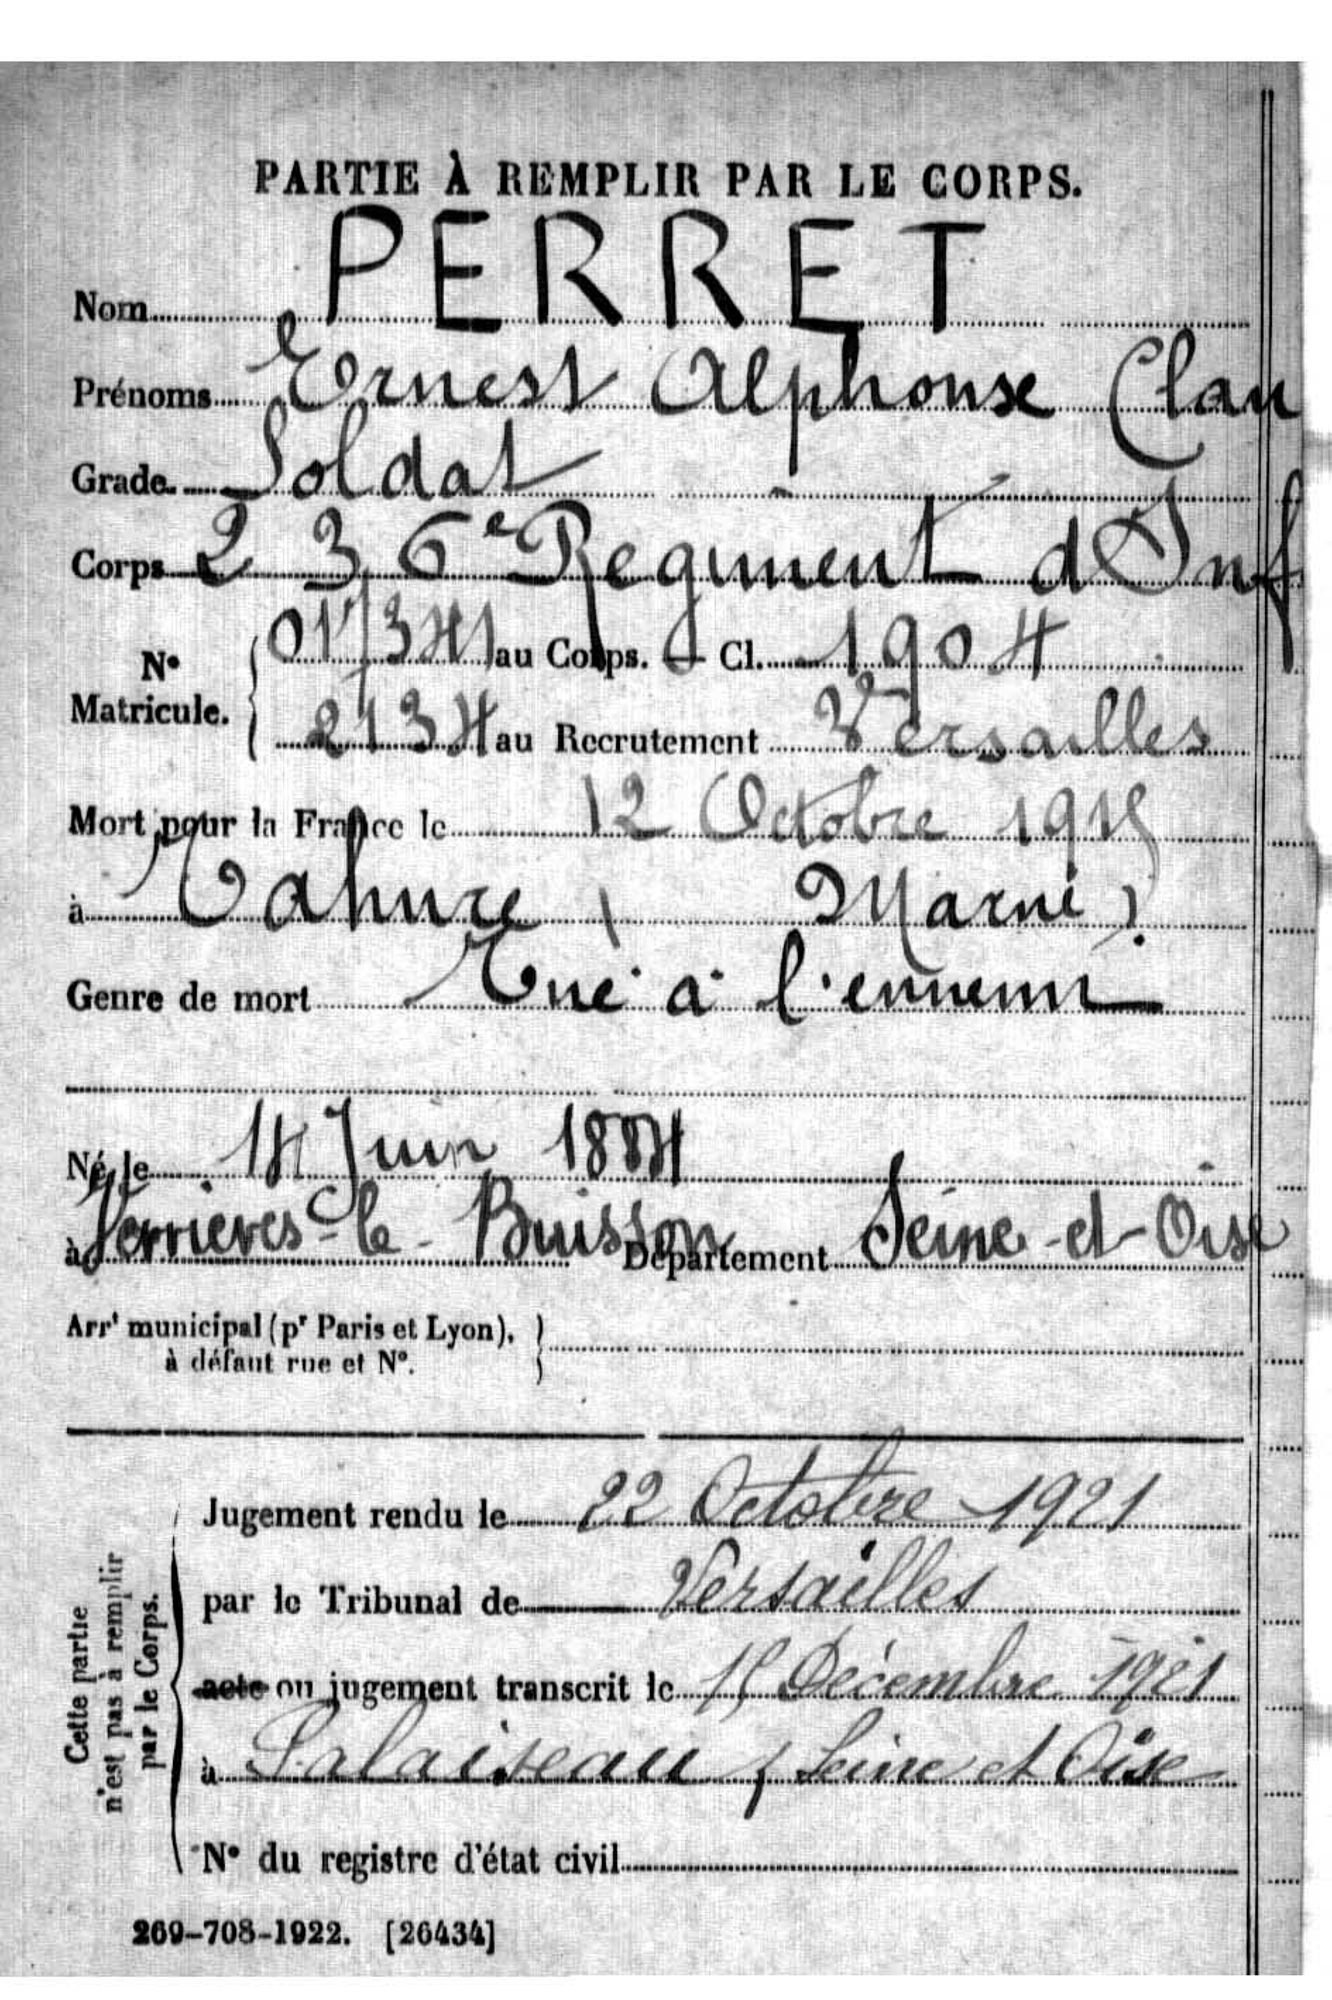 PARTIE À REMPLIR PAR LE CORPS.
Nom PERRET
Prénoms Ernest Alphonse Clau
Grade. Soldat
Corps 236e Regiment d'Inf
N° 01734 au Corps. Cl. 1904
Matricule. 2134 au Recrutement Versailles
Mort pour la France le 12 Octobre 1915
à Tahure (Marne)
Genre de mort Tué à l'ennemi
Né le 14 Juin 1884
à Verrieres-le-Buisson Département Seine-et-Oise
Arrt municipal (pr Paris et Lyon),
à défaut rue et N°.
Cette partie
n'est pas à remplir
par le Corps.
Jugement rendu le 22 Octobre 1921
par le Tribunal de Versailles
acte ou jugement transcrit le 15 Décembre 1921
à Palaiseau (Seine et Oise
N° du registre d'état civil
269-708-1922. [26434]